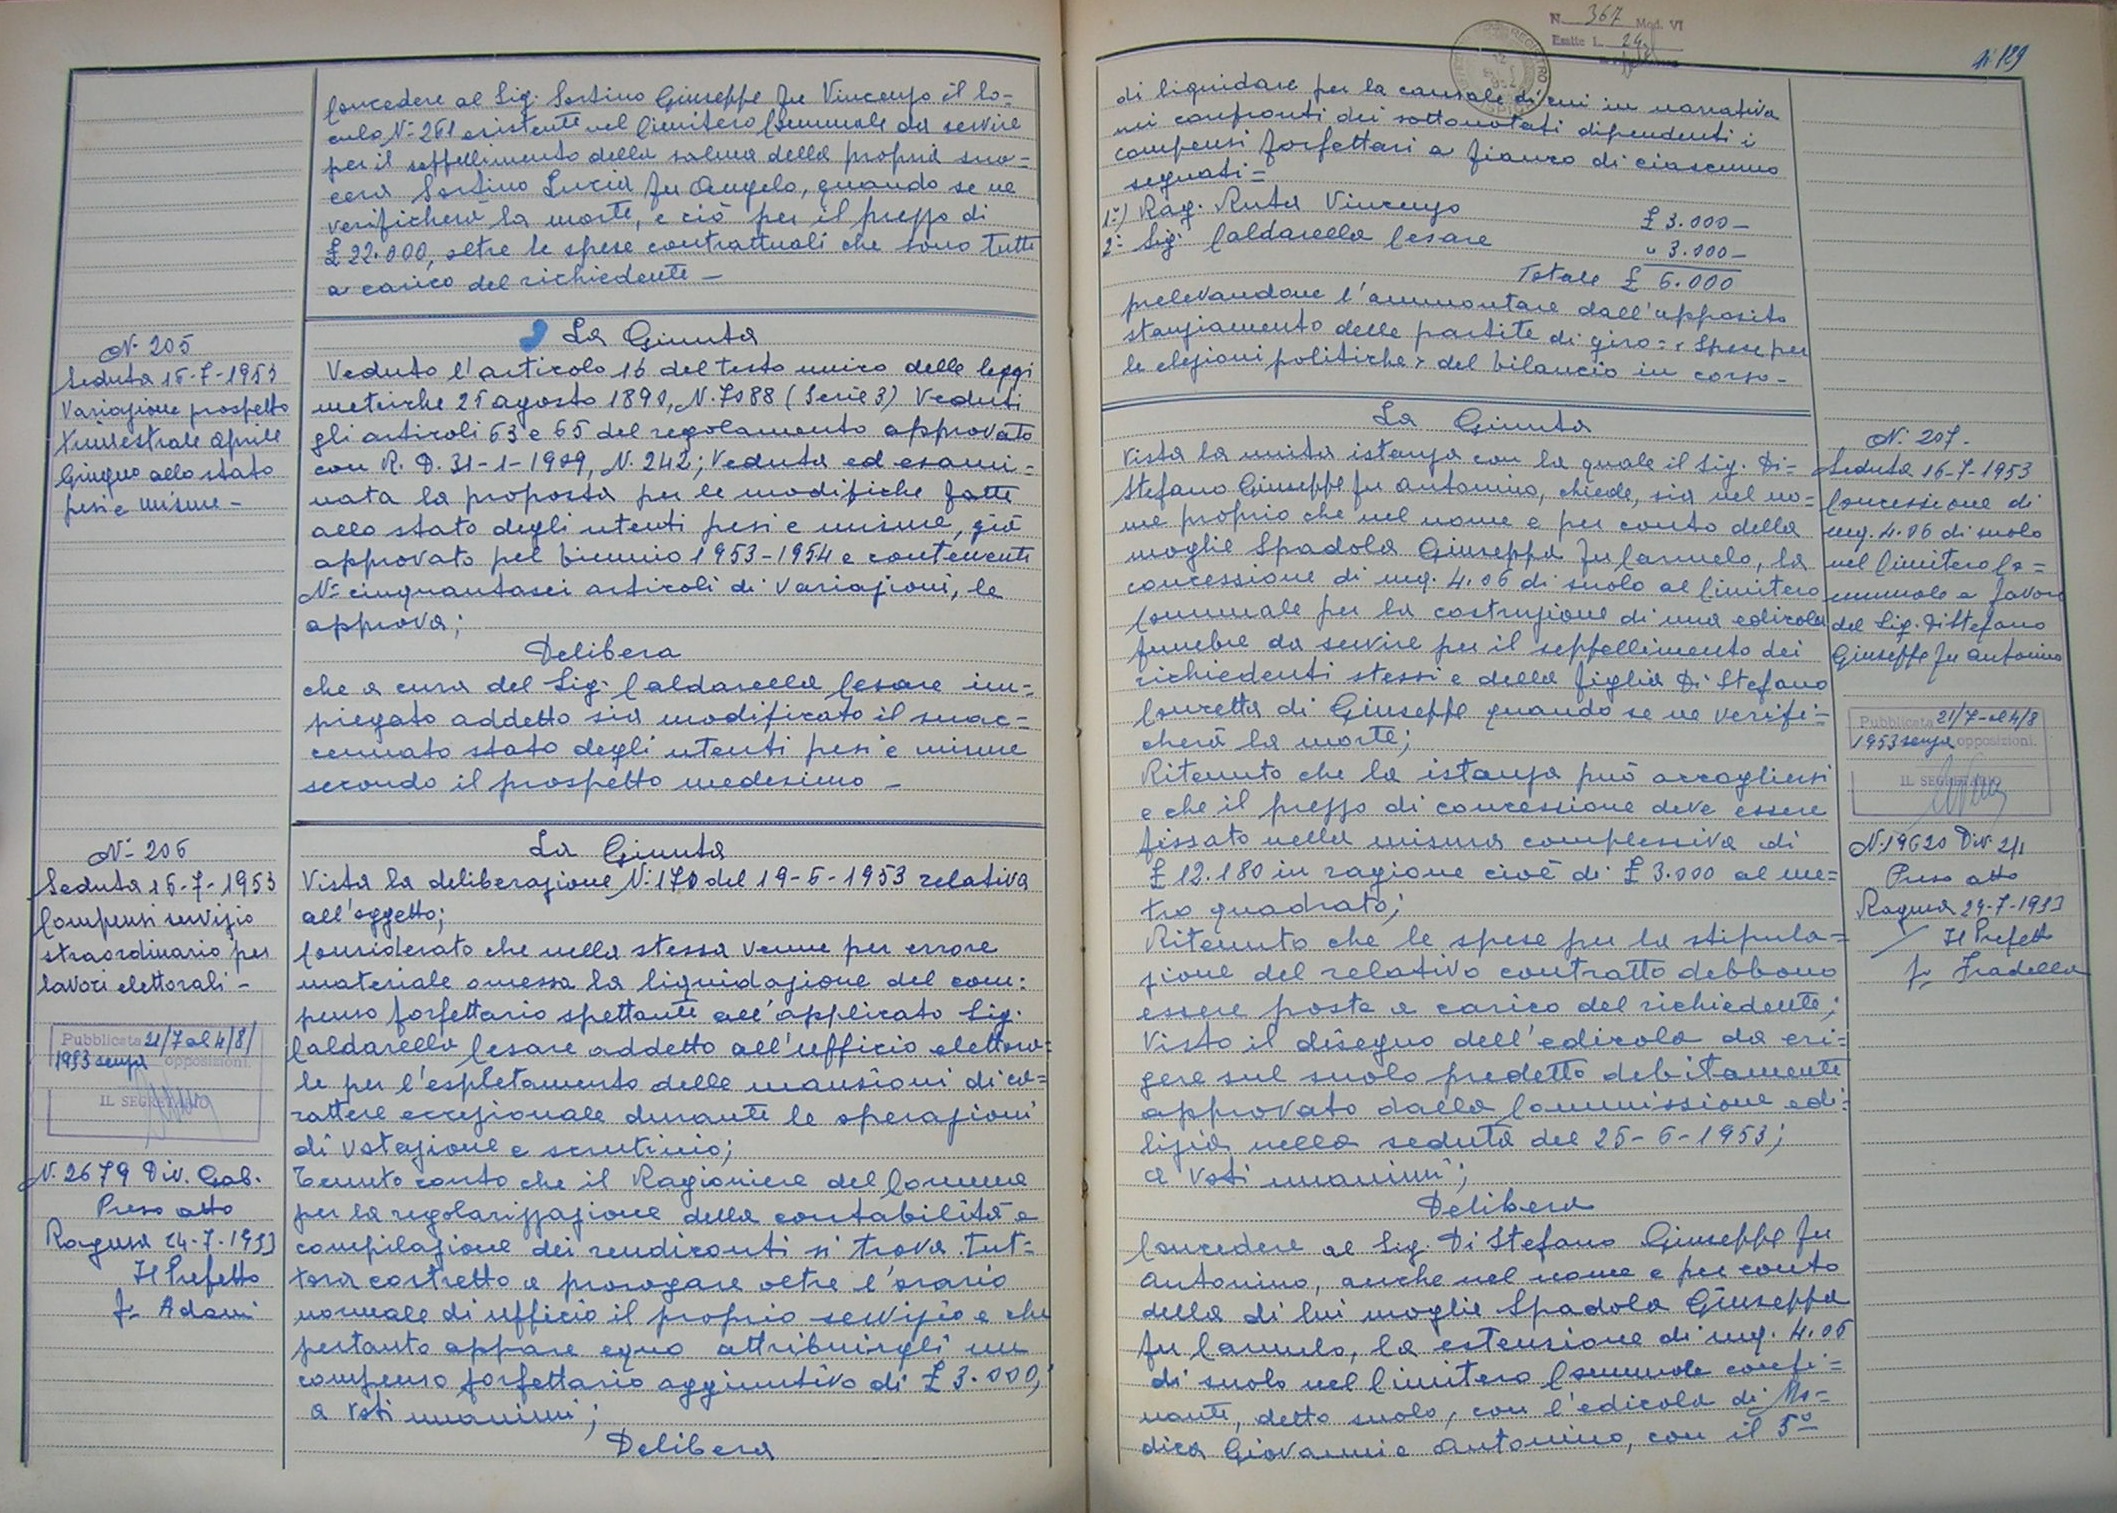 Concedere al Sig. Sortino Giuseppe fu Vincenzo il lo=
culo N= 261 esistente nel Cimitero Comunale da servire
per il seppellimento della salma della propria suo=
cera Sortino Lucia fu Angelo, quando se ne
verificherà la morte, e ciò per il prezzo di
£ 22.000, oltre le spese contrattuali che sono tutte
a carico del richiedente –
N. 205
Seduta 16-7-1953
Variazione prospetto
trimestrale Aprile
Giugno allo stato
pesi e misure –
La Giunta
Veduto l'articolo 16 del testo unico delle leggi
metriche 25 agosto 1890, N. 7088 (Serie 3) Veduti
gli articoli 63 e 65 del regolamento approvato
con R. D. 31-1-1909, N. 242; Veduta ed esami=
nata la proposta per le modifiche fatte
allo stato degli utenti pesi e misure, già
approvato pel biennio 1953-1954 e contenente
N= cinquantasei articoli di variazioni, la
approva;
Delibera
che a cura del Sig. Caldarella Cesare im=
piegato addetto sia modificato il suac=
cennato stato degli utenti pesi e misure
secondo il prospetto medesimo –
N= 206
Seduta 16-7-1953
Compensi servizio
straordinario per
lavori elettorali –
Pubblicata 21/7 al 4/8/
1953 senza opposizioni.
IL SEGRETARIO
N. 2679 Div. Gab.
Preso atto
Ragusa 24-7-1953
Il Prefetto
f. Adami
La Giunta
Vista la deliberazione N: 170 del 19-6-1953 relativa
all'oggetto;
Considerato che nella stessa venne per errore
materiale omessa la liquidazione del com=
penso forfettario spettante all'applicato Sig.
Caldarella Cesare addetto all'ufficio elettora=
le per l'espletamento delle mansioni di ca=
rattere eccezionale durante le operazioni
di votazione e scrutinio;
Tenuto conto che il Ragioniere del Comune
per la regolarizzazione della contabilità e
compilazione dei rendiconti si trova tut=
tora costretto a prorogare oltre l'orario
normale di ufficio il proprio servizio e che
pertanto appare equo attribuirgli un
compenso forfettario aggiuntivo di £ 3.000;
a voti unanimi;
Delibera
N. 367 Mod. VI
Esatte L. 24
di liquidare per la causale di cui in narrativa
nei confronti dei sottonotati dipendenti i
compensi forfettari a fianco di ciascuno
segnati =
1°) Rag. Ruta Vincenzo £ 3.000 –
2= Sig. Caldarella Cesare " 3.000 –
Totale £ 6.000
prelevandone l'ammontare dall'apposito
stanziamento delle partite di giro: « Spese per
le elezioni politiche » del bilancio in corso –
La Giunta
Vista la unita istanza con la quale il Sig. Di=
Stefano Giuseppe fu Antonino, chiede, sia nel no=
me proprio che nel nome e per conto della
moglie Spadola Giuseppa fu Carmelo, la
concessione di mq. 4.06 di suolo al Cimitero
Comunale per la costruzione di una edicola
funebre da servire per il seppellimento dei
richiedenti stessi e della figlia Di Stefano
Concetta di Giuseppe quando se ne verifi=
cherà la morte;
Ritenuto che la istanza può accogliersi
e che il prezzo di concessione deve essere
fissato nella misura complessiva di
£ 12.180 in ragione cioè di £ 3.000 al me=
tro quadrato;
Ritenuto che le spese per la stipula=
zione del relativo contratto debbono
essere poste a carico del richiedente;
Visto il disegno dell'edicola da eri=
gere sul suolo predetto debitamente
approvato dalla Commissione edi=
lizia nella seduta del 25-6-1953;
a voti unanimi;
Delibera
Concedere al Sig. Di Stefano Giuseppe fu
Antonino, anche nel nome e per conto
della di lui moglie Spadola Giuseppa
fu Carmelo, la estensione di mq. 4.06
di suolo nel Cimitero Comunale confi=
nante, detto suolo, con l'edicola di Mo=
dica Giovanni e Antonino, con il 5°
N. 207.
Seduta 16-7-1953
Concessione di
mq. 4.06 di suolo
nel Cimitero Co=
munale a favore
del Sig. Di Stefano
Giuseppe fu Antonino
Pubblicata 21/7 al 4/8
1953 senza opposizioni.
IL SEGRETARIO
N. 19620 Div. 2/1
Preso atto
Ragusa 29-7-1953
Il Prefetto
f. Fradella